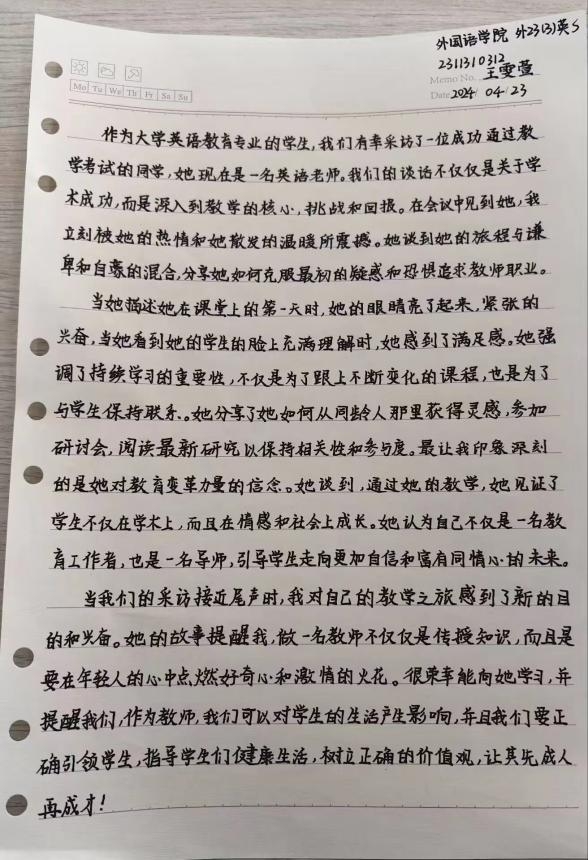 外国语学院 外23(3)英S
2311310312
Memo No. 王雯萱
Mo Tu We Th Fr Sa Su
Date 2024/04/23
作为大学英语教育专业的学生,我们有幸采访了一位成功通过教
学考试的同学,她现在是一名英语老师。我们的谈话不仅仅是关于学
术成功,而是深入到教学的核心,挑战和回报。在会议中见到她,我
立刻被她的热情和她散发的温暖所震撼。她谈到她的旅程与谦
卑和自豪的混合,分享她如何克服最初的疑惑和恐惧追求教师职业。
当她描述她在课堂上的第一天时,她的眼睛亮了起来,紧张的
兴奋,当她看到她的学生的脸上充满理解时,她感到了满足感。她强
调了持续学习的重要性,不仅是为了跟上不断变化的课程,也是为了
与学生保持联系。她分享了她如何从同龄人那里获得灵感,参加
研讨会,阅读最新研究以保持相关性和参与度。最让我印象深刻
的是她对教育变革力量的信念。她谈到,通过她的教学,她见证了
学生不仅在学术上,而且在情感和社会上成长。她认为自己不仅是一名教
育工作者,也是一名导师,引导学生走向更加自信和富有同情心的未来。
当我们的采访接近尾声时,我对自己的教学之旅感到了新的目
的和兴奋。她的故事提醒我,做一名教师不仅仅是传授知识,而且是
要在年轻人的心中点燃好奇心和激情的火花。很荣幸能向她学习,并
提醒我们,作为教师,我们可以对学生的生活产生影响,并且我们要正
确引领学生,指导学生们健康生活,树立正确的价值观,让其先成人
再成才!